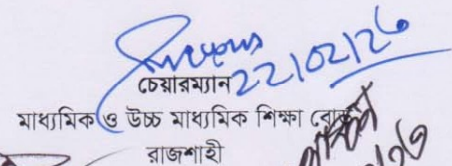 22/02/26
চেয়ারম্যান
মাধ্যমিক ও উচ্চ মাধ্যমিক শিক্ষা বোর্ড
রাজশাহী